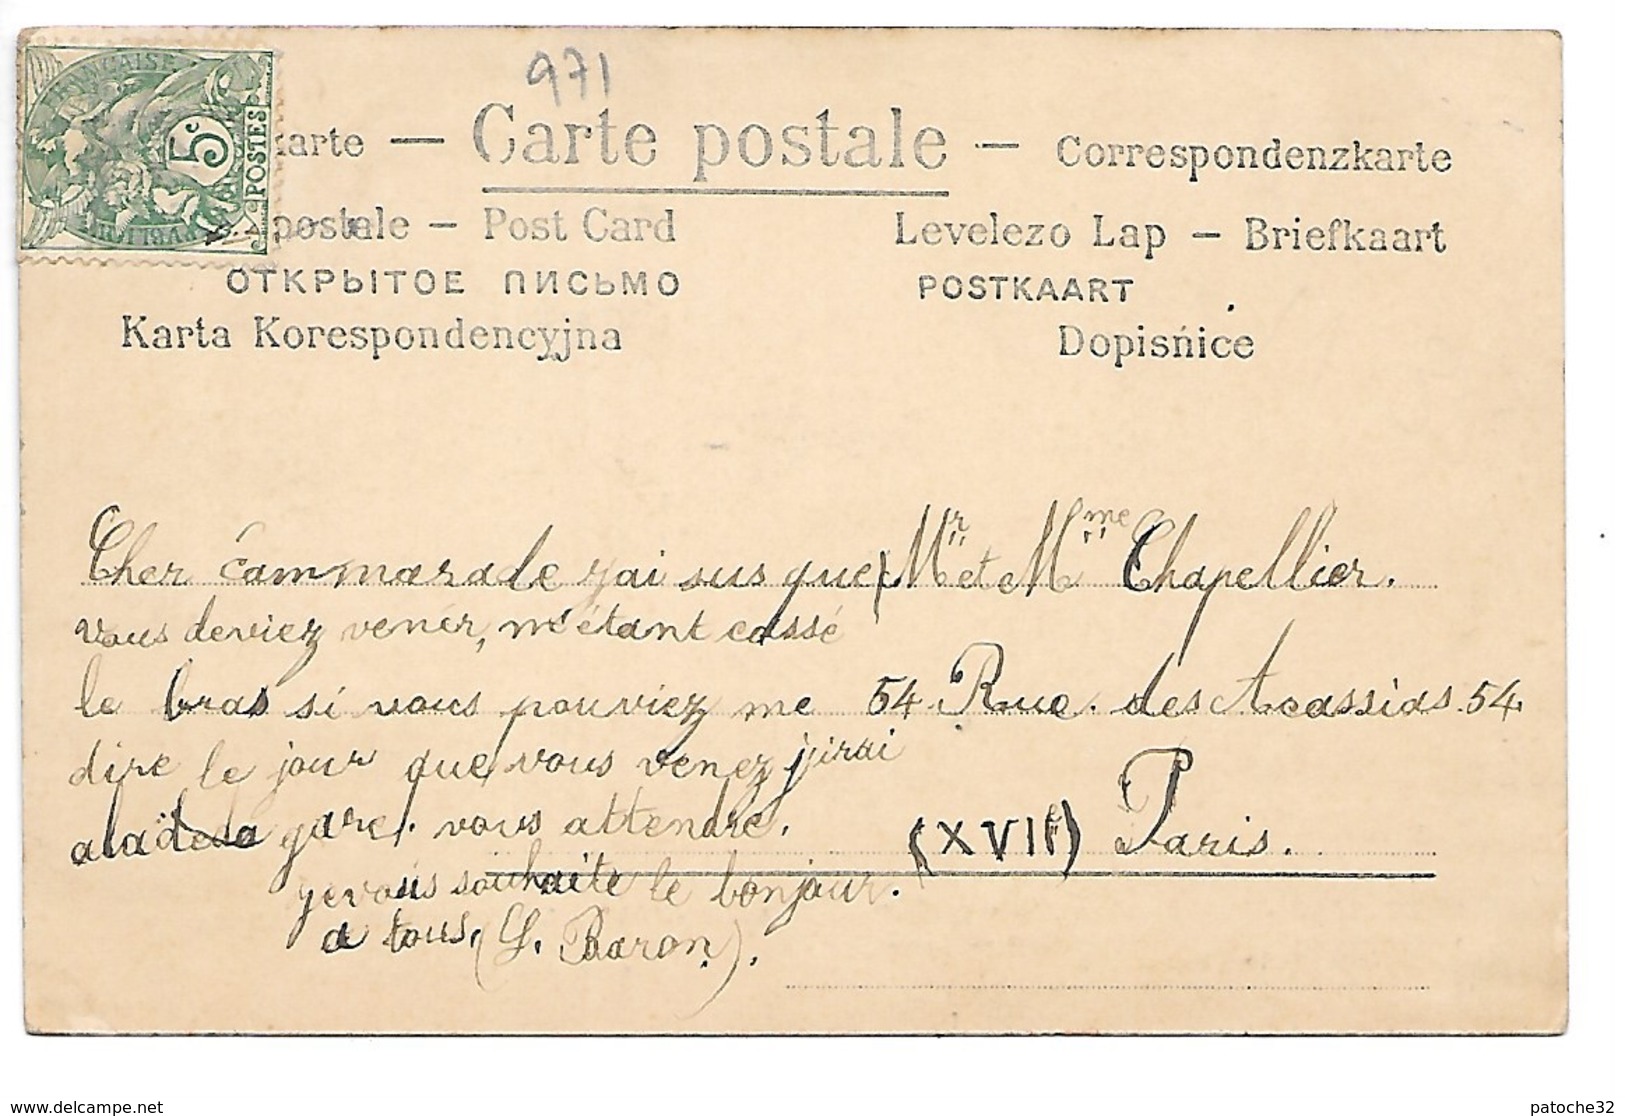 971
FRANÇAISE
5c
POSTES
karte — Carte postale — Correspondenzkarte
postale — Post Card
Levelezo Lap — Briefkaart
ОТКРЫТОЕ ПИСЬМО
POSTKAART
Karta Korespondencyjna
Dopisńice
Cher cammarade j'ai sus que
vous deviez venir, m'étant cassé
le bras si vous pouviez me
dire le jour que vous venez j'irai
a la gare. vous attendre.
je vous souhaite le bonjour.
a tous. (L. Baron).
Mr et Mme Chapellier.
54. Rue. des Acassias. 54
(XVII) Paris.
www.delcampe.net
patoche32